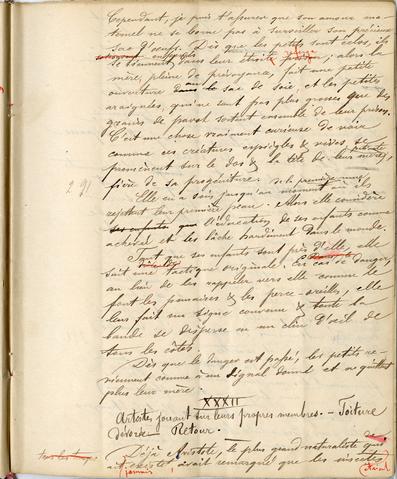 Cependant, je puis t'assurer que son amour ma-
ternel ne se borne pas à surveiller son précieux
sac d'œufs. Dès que les petits sont éclos, ils
se tiennent dans leur étroite prison; alors la
mère, pleine de prévoyance, fait une petite
ouverture au sac de soie, et les petites
araignées, qui ne sont pas plus grosses que des
grains de pavot sortent ensemble de leur prison.
C'est une chose vraiment curieuse de voir
comme ces créatures espiègles & vives se
promènent sur le dos & la tête de leur mère,
fière de sa progéniture.
291
Elle en a soin jusqu'au moment où ils
rejettent leur première peau. Alors elle considère
l'éducation de ses enfants comme
achevée et les lâche hardiment dans le monde.
Tant que ses enfants sont près d'elle, elle
suit une tactique originale. En cas de danger,
au lieu de les rappeler vers elle comme le
font les punaises & les perce-oreilles, elle
leur fait un signe convenu & toute la
bande se disperse en un clin d'œil de
tous les côtés.
Dès que le danger est passé, les petits re-
viennent comme à un signal donné et ne quittent
plus leur mère.
XXXII
Artistes jouant sur leurs propres membres. – Toiture
dévorée. Retour.
Déjà Aristote, le plus grand naturaliste
jamais, avait remarqué que les insectes